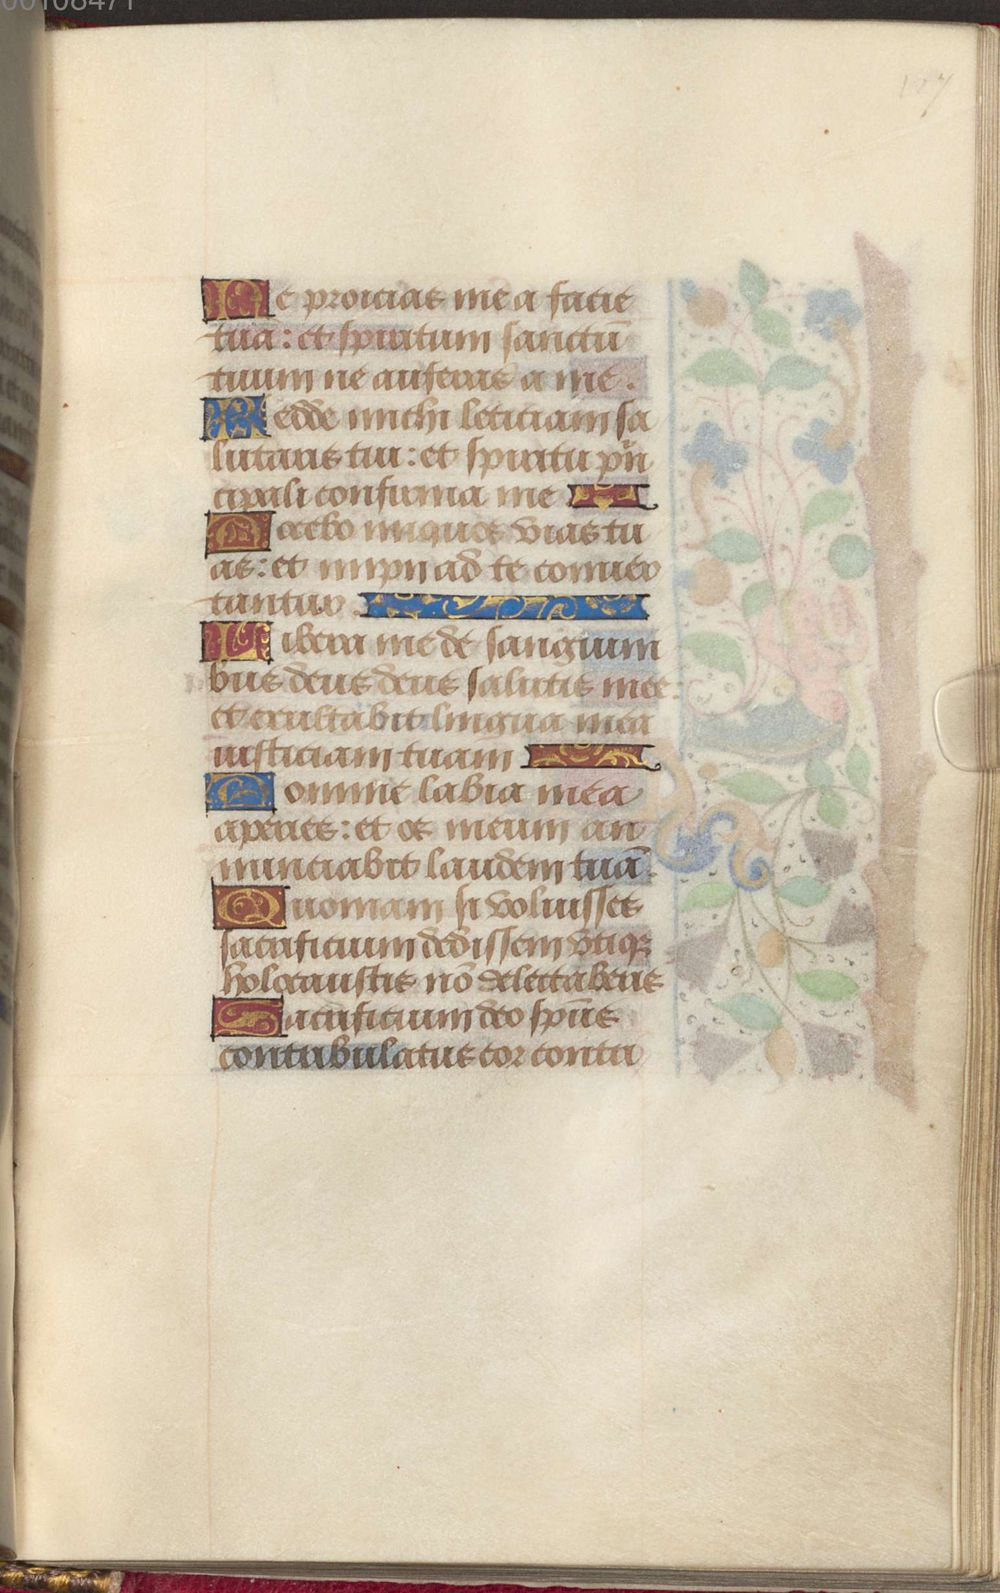 00108471
127
Ne proicias me a facie
tua: et spiritum sanctū
tuum ne auferas a me.
Redde michi leticiam sa
lutaris tui: et spiritu prin
cipali confirma me
Docebo iniquos vias tu
as: et impii ad te conuer
tantur
Libera me de sanguini
bus deus deus salutis mee:
et exultabit lingua mea
iusticiam tuam
Domine labia mea
aperies: et os meum an
nunciabit laudem tuā.
Quoniam si voluisses
sacrificium dedissem vtiqz
holocaustis nō delectaberis
Sacrificium deo spūs
contribulatus cor contri